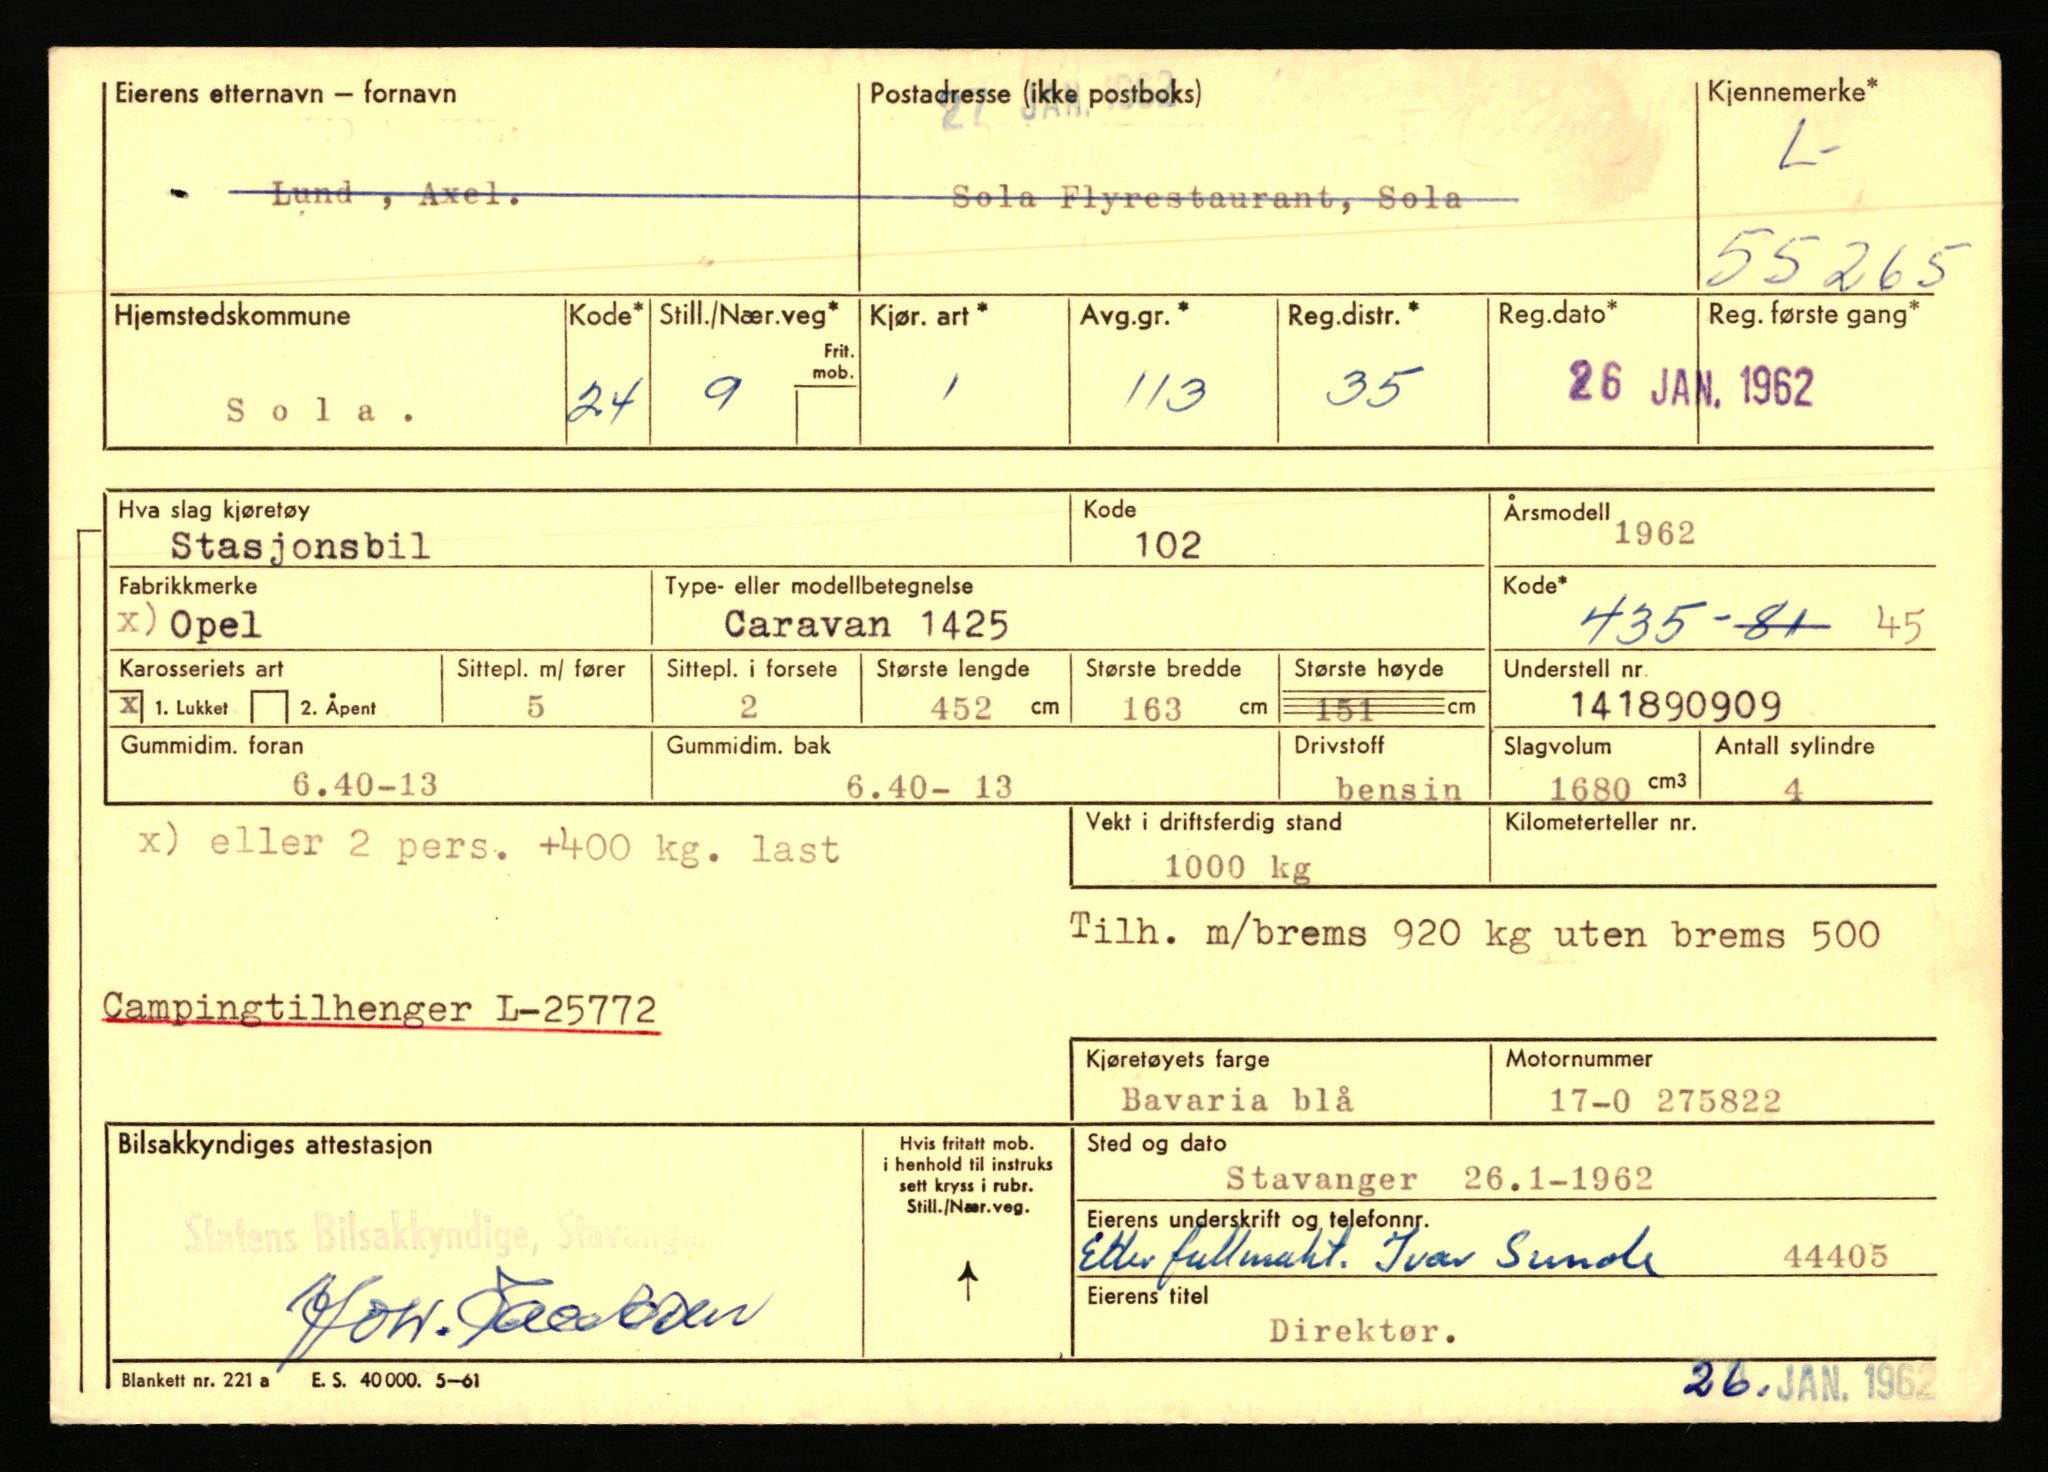 Eierens etternavn – fornavn
Postadresse (ikke postboks)
Kjennemerke*
27 JAN. 1962
L-
Lund , Axel.
Sola Flyrestaurant, Sola
55265
Hjemstedskommune
Kode*
Still./Nær.veg*
Kjør. art *
Avg.gr. *
Reg.distr. *
Reg.dato*
Reg. første gang*
Frit.
mob.
Sola.
24
9
1
113
35
26 JAN. 1962
Hva slag kjøretøy
Kode
Årsmodell
Stasjonsbil
102
1962
Fabrikkmerke
Type- eller modellbetegnelse
Kode*
x) Opel
Caravan 1425
435-81 45
Karosseriets art
Sittepl. m/ fører
Sittepl. i forsete
Største lengde
Største bredde
Største høyde
Understell nr.
X 1. Lukket 2. Åpent
5
2
452 cm
163 cm
151 cm
141890909
Gummidim. foran
Gummidim. bak
Drivstoff
Slagvolum
Antall sylindre
6.40-13
6.40- 13
bensin
1680 cm3
4
x) eller 2 pers. +400 kg. last
Vekt i driftsferdig stand
Kilometerteller nr.
1000 kg
Tilh. m/brems 920 kg uten brems 500
Campingtilhenger L-25772
Kjøretøyets farge
Motornummer
Bavaria blå
17-0 275822
Bilsakkyndiges attestasjon
Hvis fritatt mob.
i henhold til instruks
sett kryss i rubr.
Still./Nær.veg.
Sted og dato
Stavanger 26.1-1962
Statens Bilsakkyndige,
Eierens underskrift og telefonnr.
Etter fullmakt. Ivar Sunde 44405
Eierens titel
Direktør.
Blankett nr. 221 a E. S. 40 000. 5–61
26. JAN. 1962